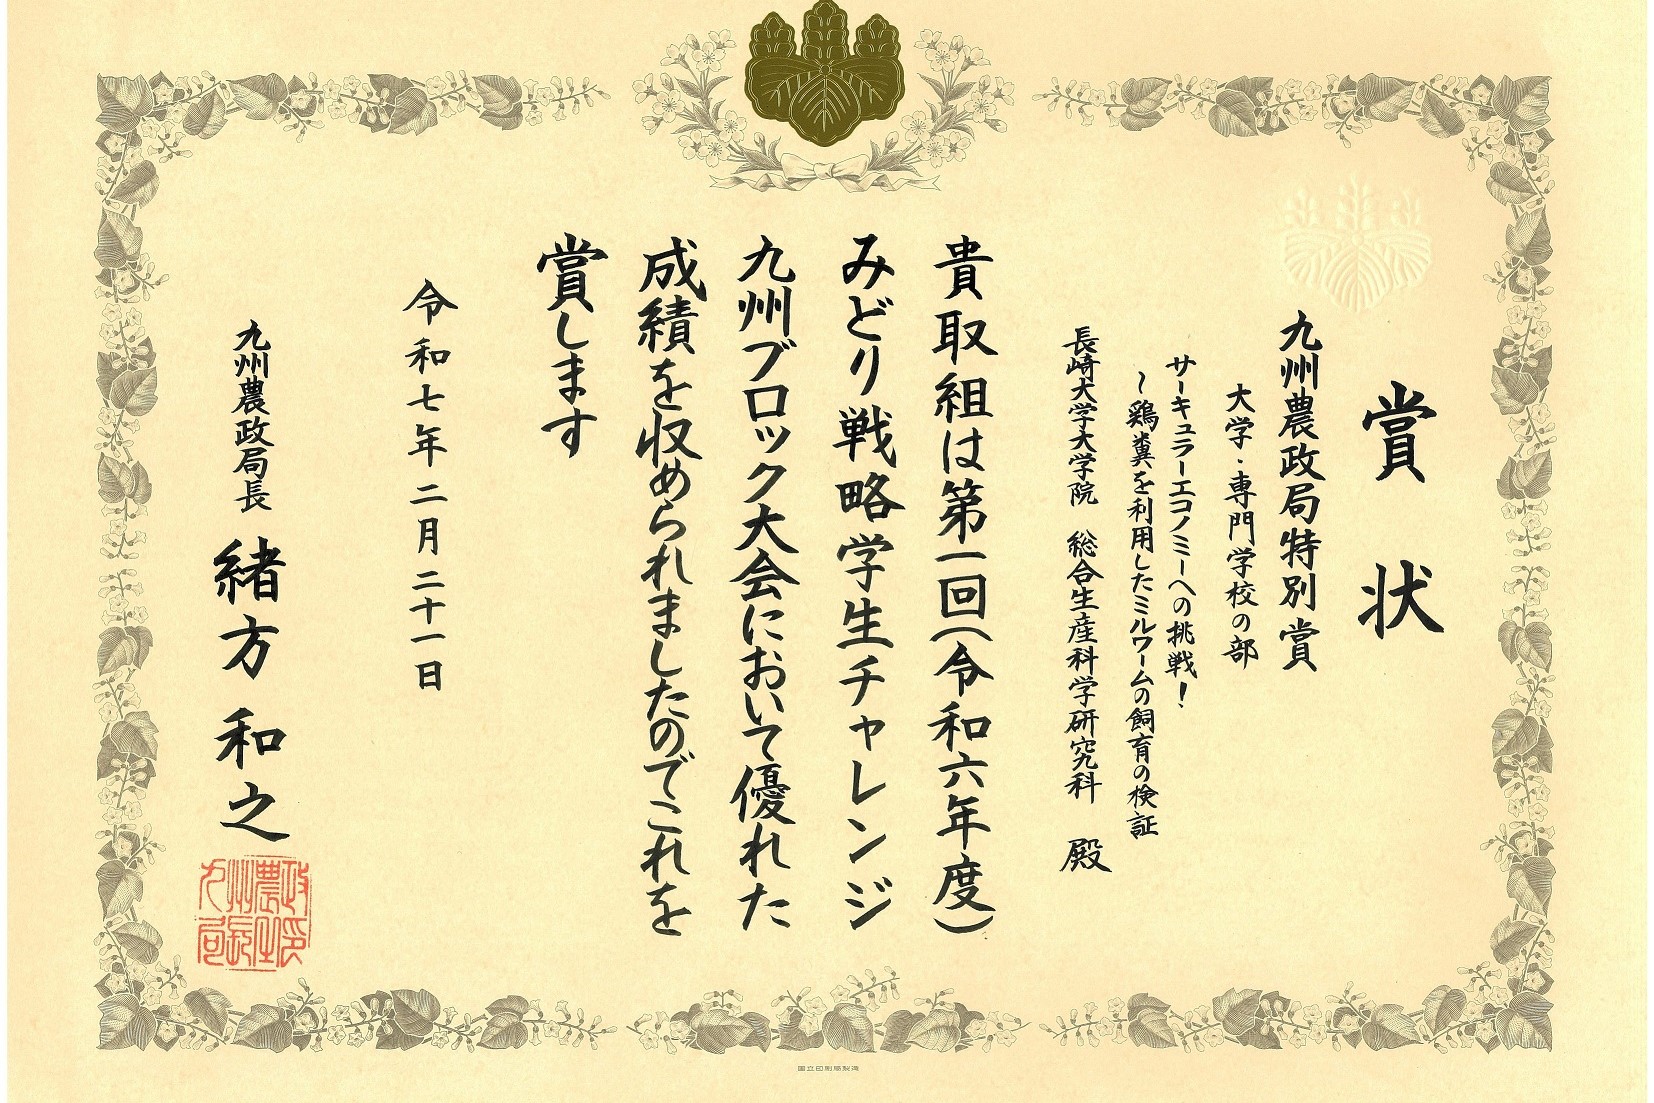 賞状
九州農政局特別賞
大学・専門学校の部
サーキュラーエコノミーへの挑戦！
～鶏糞を利用したミルワームの飼育の検証
長崎大学大学院 総合生産科学研究科 殿
貴取組は第一回(令和六年度)
みどり戦略学生チャレンジ
九州ブロック大会において優れた
成績を収められましたのでこれを
賞します
令和七年二月二十一日
九州農政局長 緒方和之
国立印刷局製造